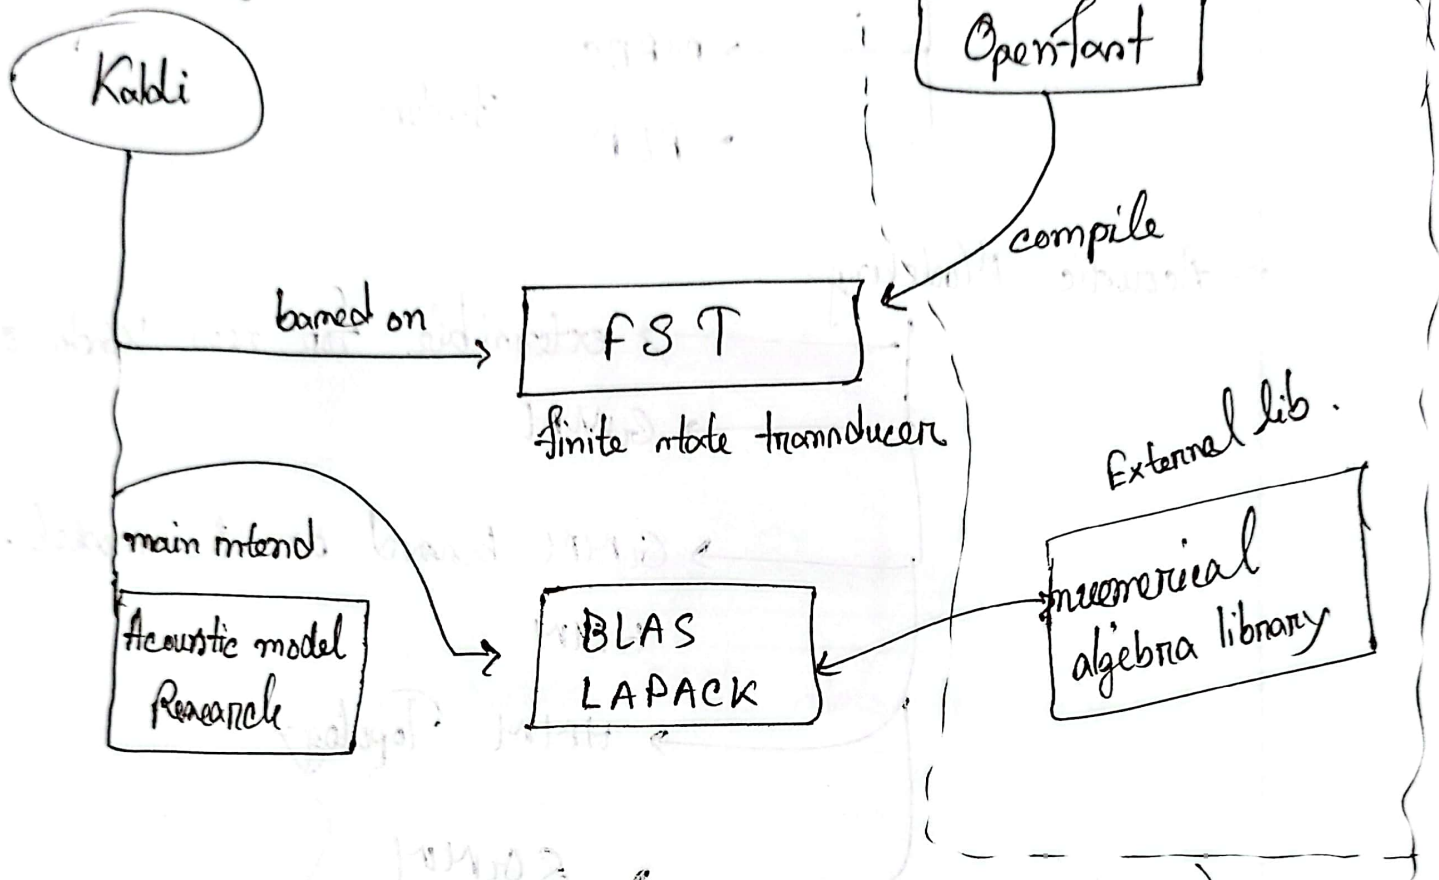 Kaldi
OpenFast
compile
based on
FST
finite state transducer
External lib.
main intend.
Acoustic model
Research
BLAS
LAPACK
nuemerical
algebra library